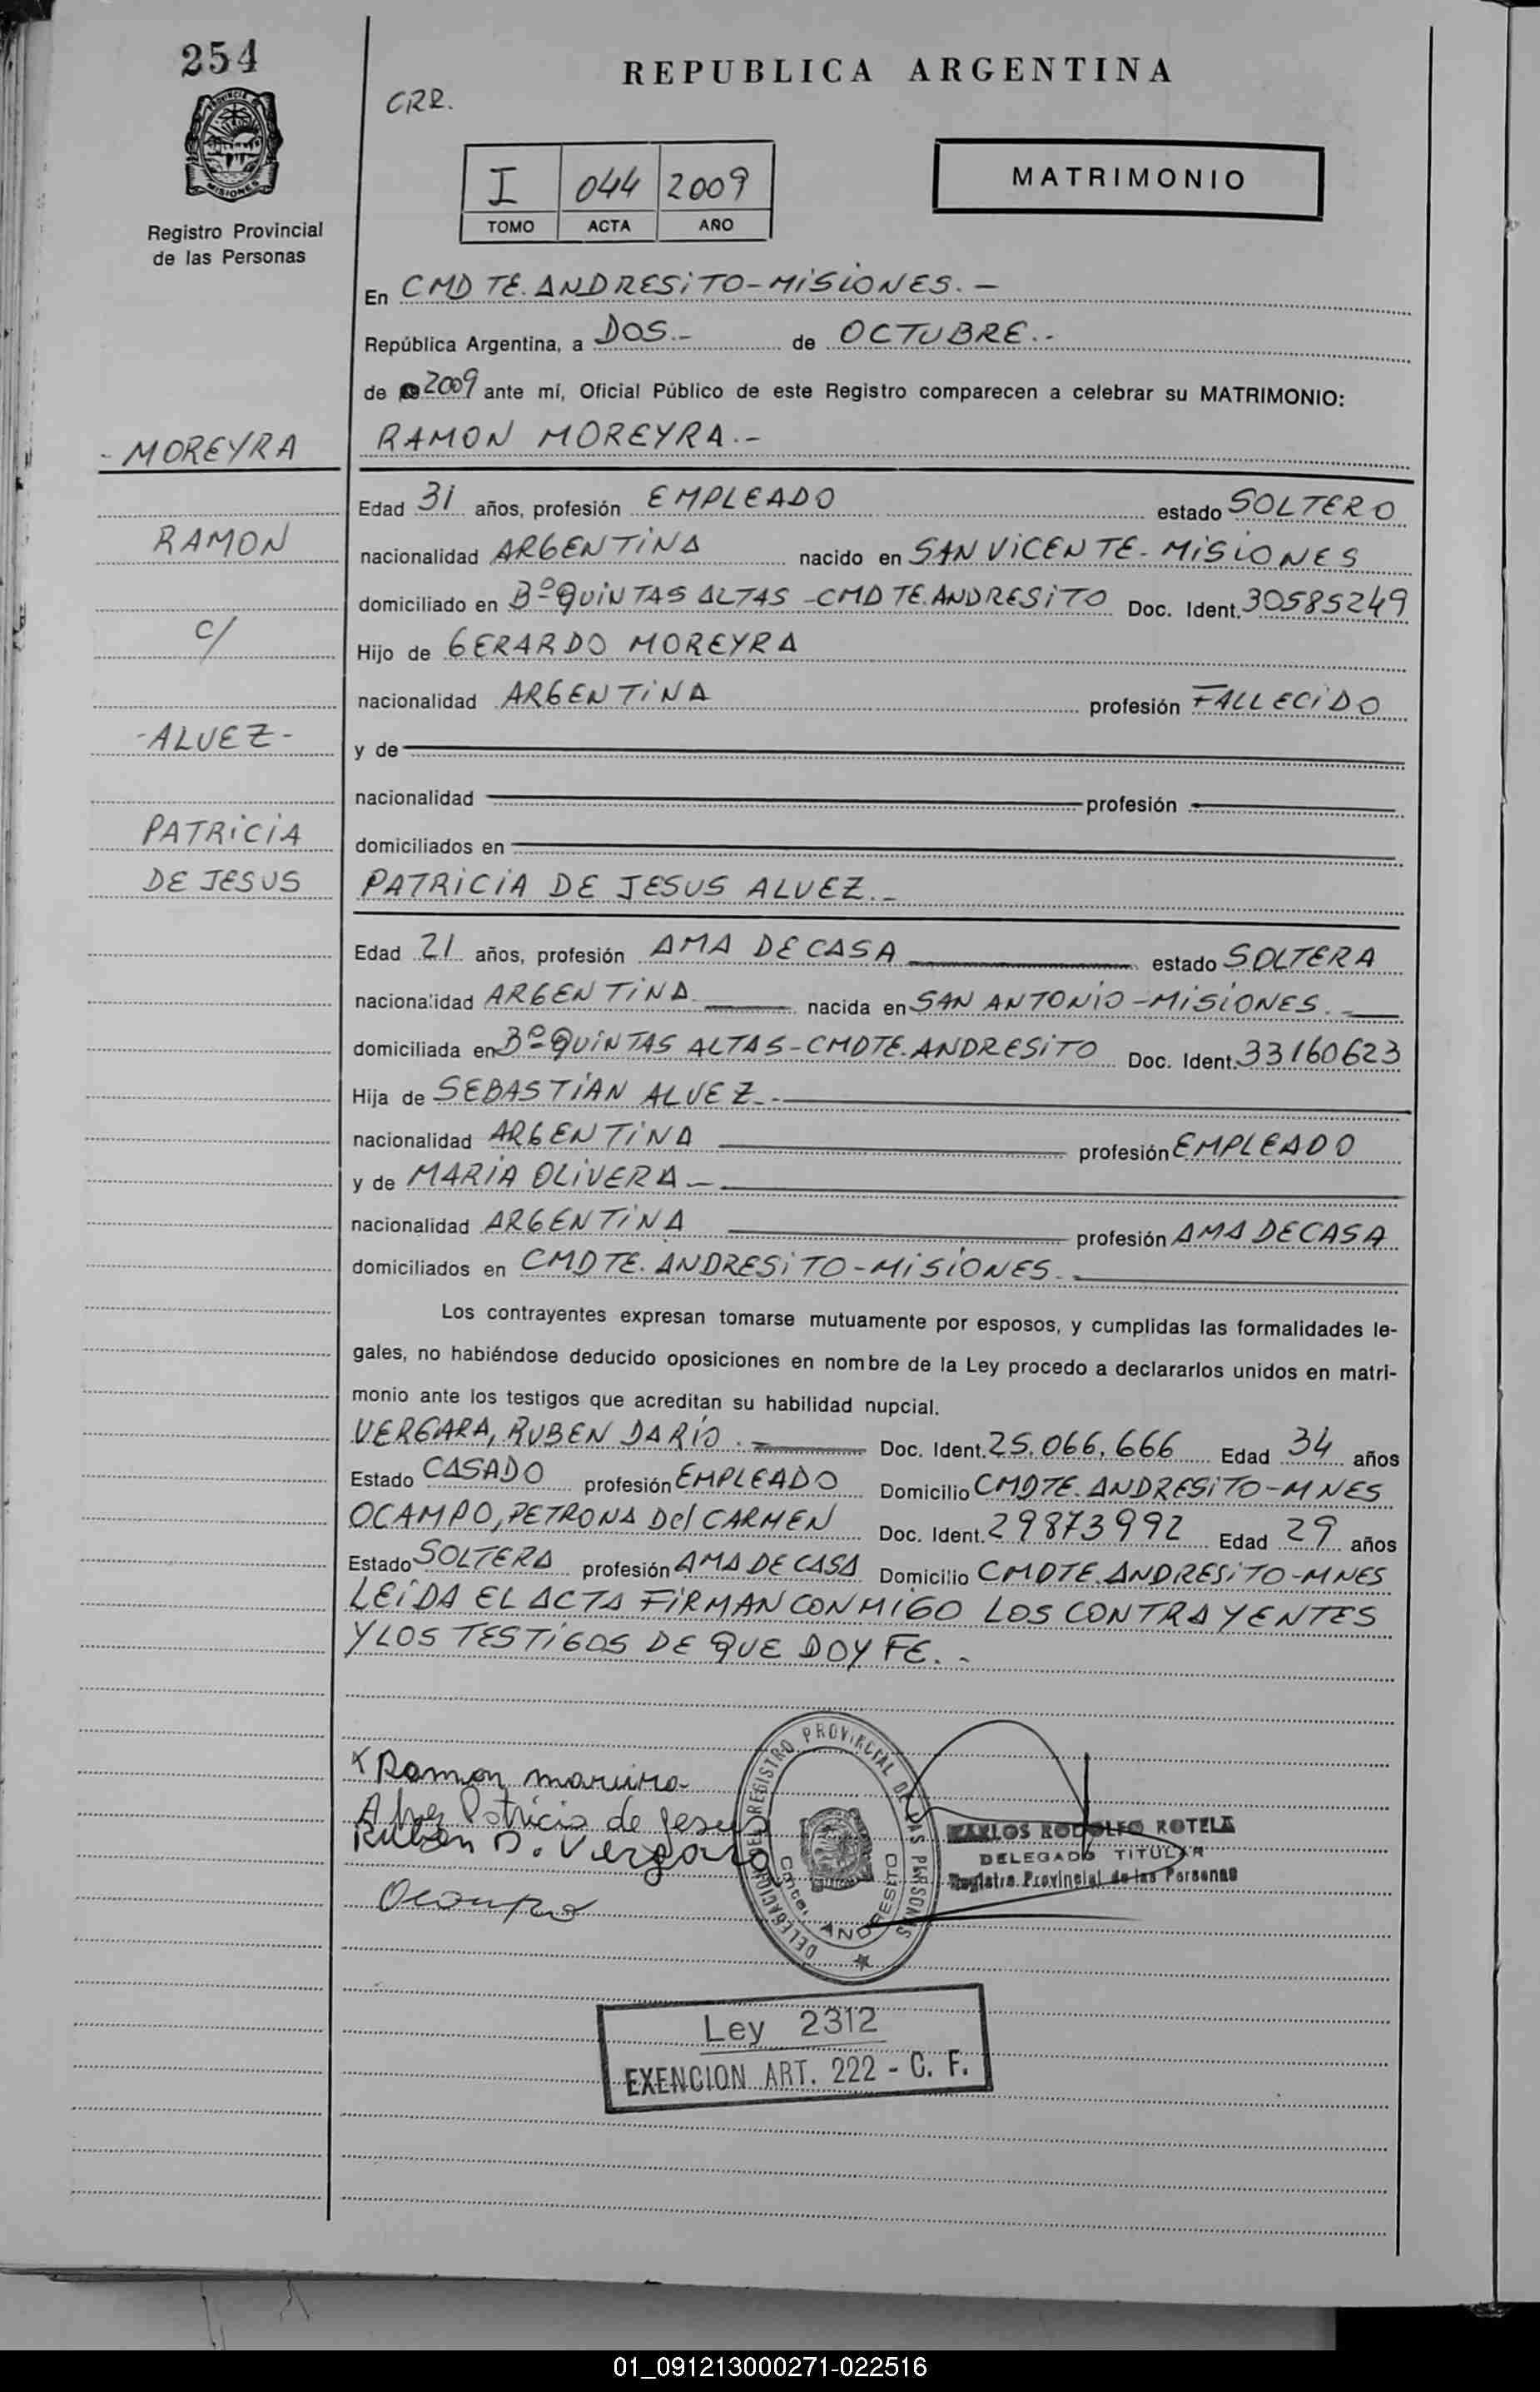 254
REPUBLICA ARGENTINA
CRR.
MISIONES
Registro Provincial
de las Personas
I 044 2009
TOMO ACTA AÑO
MATRIMONIO
En CMDTE. ANDRESITO-MISIONES.-
República Argentina, a DOS.- de OCTUBRE.-
de 2009 ante mí, Oficial Público de este Registro comparecen a celebrar su MATRIMONIO:
-MOREYRA
RAMON MOREYRA.-
Edad 31 años, profesión EMPLEADO estado SOLTERO
RAMON
nacionalidad ARGENTINA nacido en SAN VICENTE-MISIONES
domiciliado en Bº QUINTAS ALTAS-CMDTE.ANDRESITO Doc. Ident. 30585249
C/
Hijo de GERARDO MOREYRA
nacionalidad ARGENTINA profesión FALLECIDO
-ALVEZ-
y de
nacionalidad profesión
PATRICIA
domiciliados en
DE JESUS
PATRICIA DE JESUS ALVEZ.-
Edad 21 años, profesión AMA DE CASA estado SOLTERA
nacionalidad ARGENTINA nacida en SAN ANTONIO-MISIONES.-
domiciliada en Bº QUINTAS ALTAS-CMDTE.ANDRESITO Doc. Ident. 33160623
Hija de SEBASTIAN ALVEZ.-
nacionalidad ARGENTINA profesión EMPLEADO
y de MARIA OLIVERA-
nacionalidad ARGENTINA profesión AMA DE CASA
domiciliados en CMDTE. ANDRESITO-MISIONES.-
Los contrayentes expresan tomarse mutuamente por esposos, y cumplidas las formalidades le-
gales, no habiéndose deducido oposiciones en nombre de la Ley procedo a declararlos unidos en matri-
monio ante los testigos que acreditan su habilidad nupcial.
VERGARA, RUBEN DARIO.- Doc. Ident. 25.066.666 Edad 34 años
Estado CASADO profesión EMPLEADO Domicilio CMDTE. ANDRESITO-MNES
OCAMPO, PETRONA Del CARMEN Doc. Ident. 29873992 Edad 29 años
Estado SOLTERA profesión AMA DE CASA Domicilio CMDTE.ANDRESITO-MNES
LEIDA EL ACTA FIRMAN CONMIGO LOS CONTRAYENTES
Y LOS TESTIGOS DE QUE DOY FE.-
x Ramon
Alvez Patricia de Jesus
Ruben D. Vergara
Ocampo
DELEGACION DEL REGISTRO PROVINCIAL DE LAS PERSONAS
Cmte. ANDRESITO
CARLOS RODOLFO ROTELA
DELEGADO TITULAR
Registro Provincial de las Personas
Ley 2312
EXENCION ART. 222 - C. F.
01_091213000271-022516